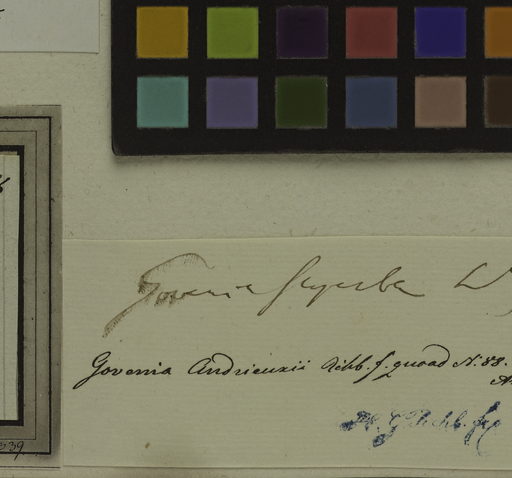 Govenia superba
Govenia Andrieuxii Rchb. f. quoad N. 88.
H. G. Rchb. fil.
339